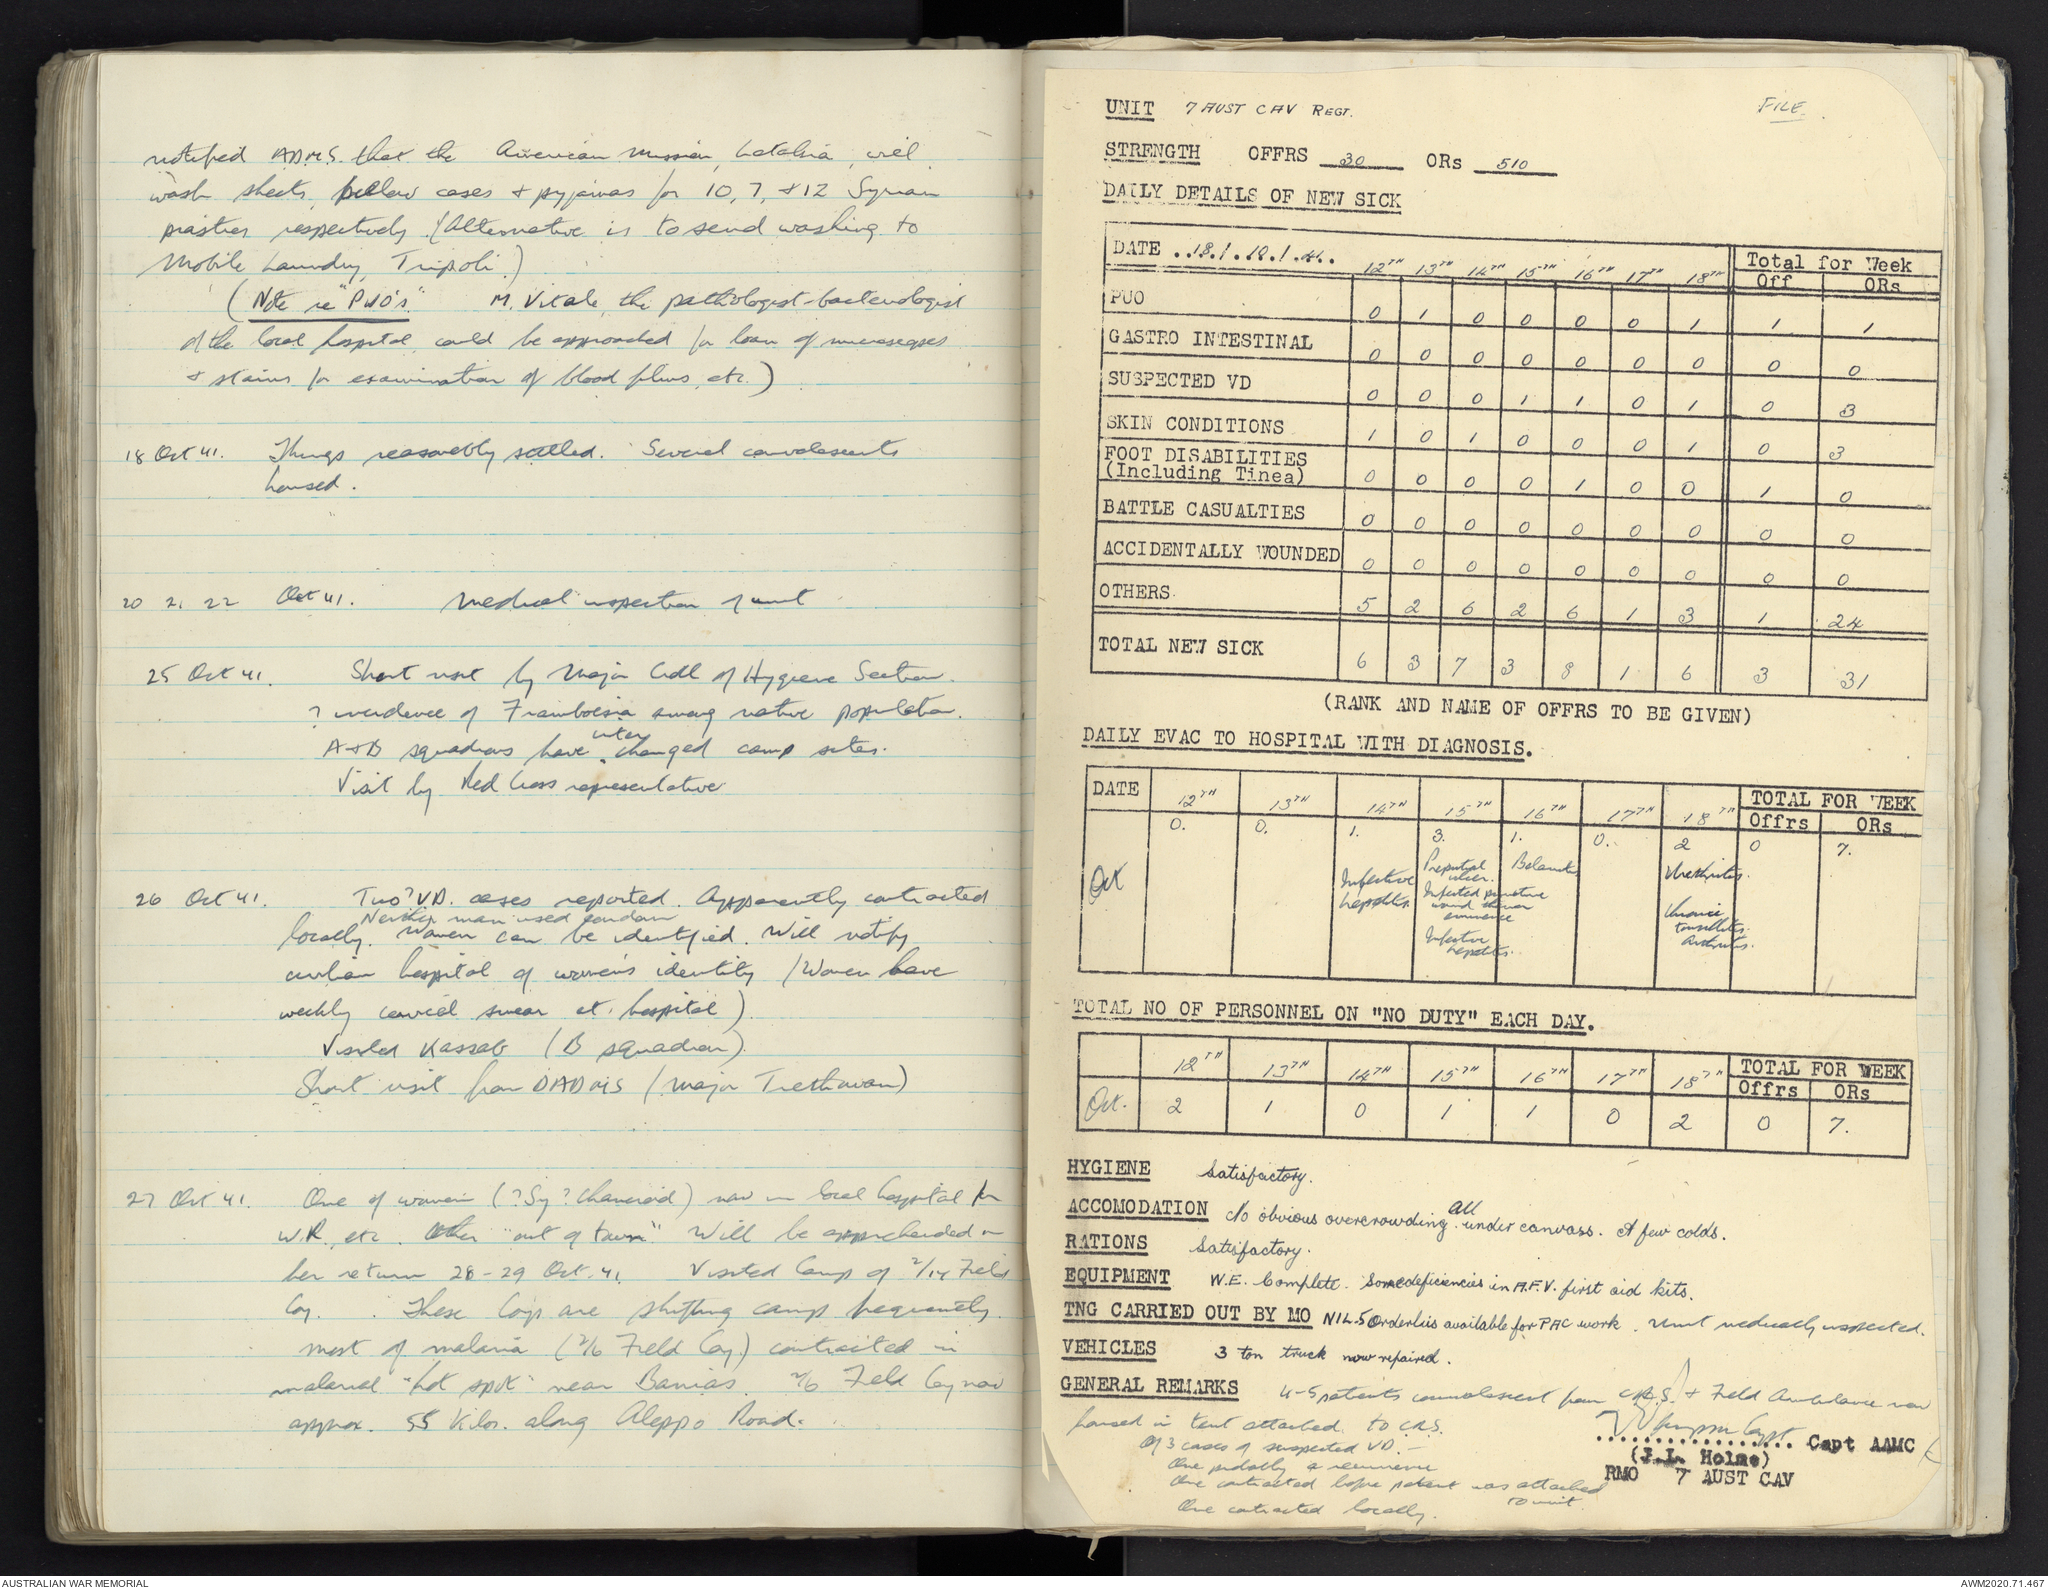 notified ADMS. that the American Mission, Latakia, will
wash sheets, pillow cases & pyjamas for 10, 7, & 12 Syrian
piastres respectively. (Alternative is to send washing to
Mobile Laundry, Tripoli.)
(Note re "PUO's". M. Vitale, the pathologist-bacteriologist
of the local hospital, could be approached for loan of microscopes
& stains for examination of blood films, etc.)
18 Oct 41. Things reasonably settled. Several convalescents
housed.
20 21 22 Oct 41. Medical inspection of unit
25 Oct 41. Short visit by Major of Hygiene Section.
? incidence of Framboesia among native population.
inter
A & B squadrons have changed camp sites.
Visit by Red Cross representative
26 Oct 41. Two ? V.D. cases reported. Apparently contracted
Neither man used condom
locally. Women can be identified. Will notify
civilian hospital of women's identity (Women have
weekly cervical smear at hospital)
Visited Kassab (B squadron).
Short visit from DADMS (Major Trethowan)
27 Oct 41. One of women (? Sy ? Chancroid) now in local hospital for
W.R. etc. Other "out of town" Will be apprehended on
her return 28-29 Oct. 41. Visited Camp of 2/14 Field
Coy. These Coys are shifting camps frequently.
most of malaria (2/6 Field Coy.) contracted in
malarial "hot spot" near Banias. 2/6 Field Coy now
approx. 55 Kilos. along Aleppo Road.
UNIT 7 AUST CAV REGT. FILE
STRENGTH OFFRS 30 ORs 510
DAILY DETAILS OF NEW SICK
DATE ..18./.10./.41.. 12TH 13TH 14TH 15TH 16TH 17TH 18TH Total for Week
Off ORs
PUO 0 1 0 0 0 0 1 1 1
GASTRO INTESTINAL 0 0 0 0 0 0 0 0 0
SUSPECTED VD 0 0 0 1 1 0 1 0 3
SKIN CONDITIONS 1 0 1 0 0 0 1 0 3
FOOT DISABILITIES
(Including Tinea) 0 0 0 0 1 0 0 1 0
BATTLE CASUALTIES 0 0 0 0 0 0 0 0 0
ACCIDENTALLY WOUNDED 0 0 0 0 0 0 0 0 0
OTHERS 5 2 6 2 6 1 3 1 24
TOTAL NEW SICK 6 3 7 3 8 1 6 3 31
(RANK AND NAME OF OFFRS TO BE GIVEN)
DAILY EVAC TO HOSPITAL WITH DIAGNOSIS.
DATE 12TH 13TH 14TH 15TH 16TH 17TH 18TH TOTAL FOR WEEK
Offrs ORs
Oct 0. 0. 1. 3. 1. 0. 2 0 7.
Infective
hepatitis.
Preputial
ulcer.
Infected punctive
wound thenar
eminence
Infective
hepatitis.
Balanitis
Urethritis.
Chronic
tonsillitis.
Arthritis.
TOTAL NO OF PERSONNEL ON "NO DUTY" EACH DAY.
12TH 13TH 14TH 15TH 16TH 17TH 18TH TOTAL FOR WEEK
Offrs ORs
Oct. 2 1 0 1 1 0 2 0 7.
HYGIENE Satisfactory.
ACCOMODATION No obvious overcrowding. All under canvass. A few colds.
RATIONS Satisfactory.
EQUIPMENT W.E. Complete. Some deficiencies in A.F.V. first aid kits.
TNG CARRIED OUT BY MO NIL. 5 Orderlies available for PAC work. Unit medically inspected.
VEHICLES 3 ton truck now repaired.
GENERAL REMARKS 4-5 patients convalescent from C.R.S. & Field Ambulance now
housed in tent attached to C.R.S.
Of 3 cases of suspected V.D. —
One probably a recurrence
One contracted before patient was attached
to unit.
One contracted locally.
Capt AAMC
(J.L. Holme)
RMO 7 AUST CAV
AUSTRALIAN WAR MEMORIAL
AWM2020.71.467